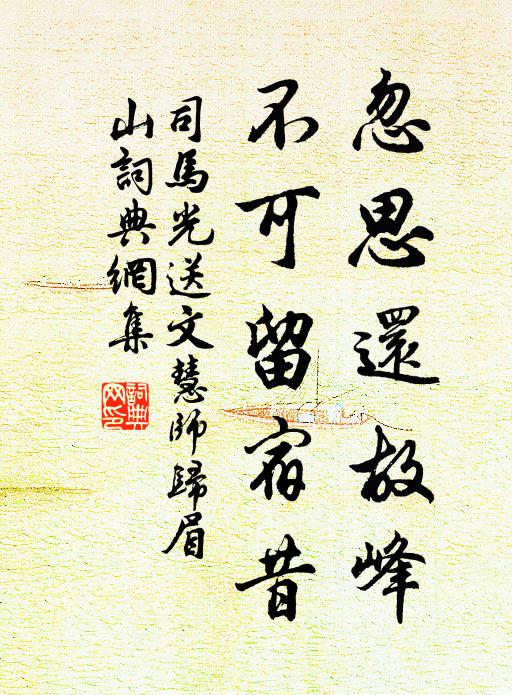 忽思還故峰
不可留宿昔
司馬光送文慧師歸眉
山詞典網集
詞典
网印